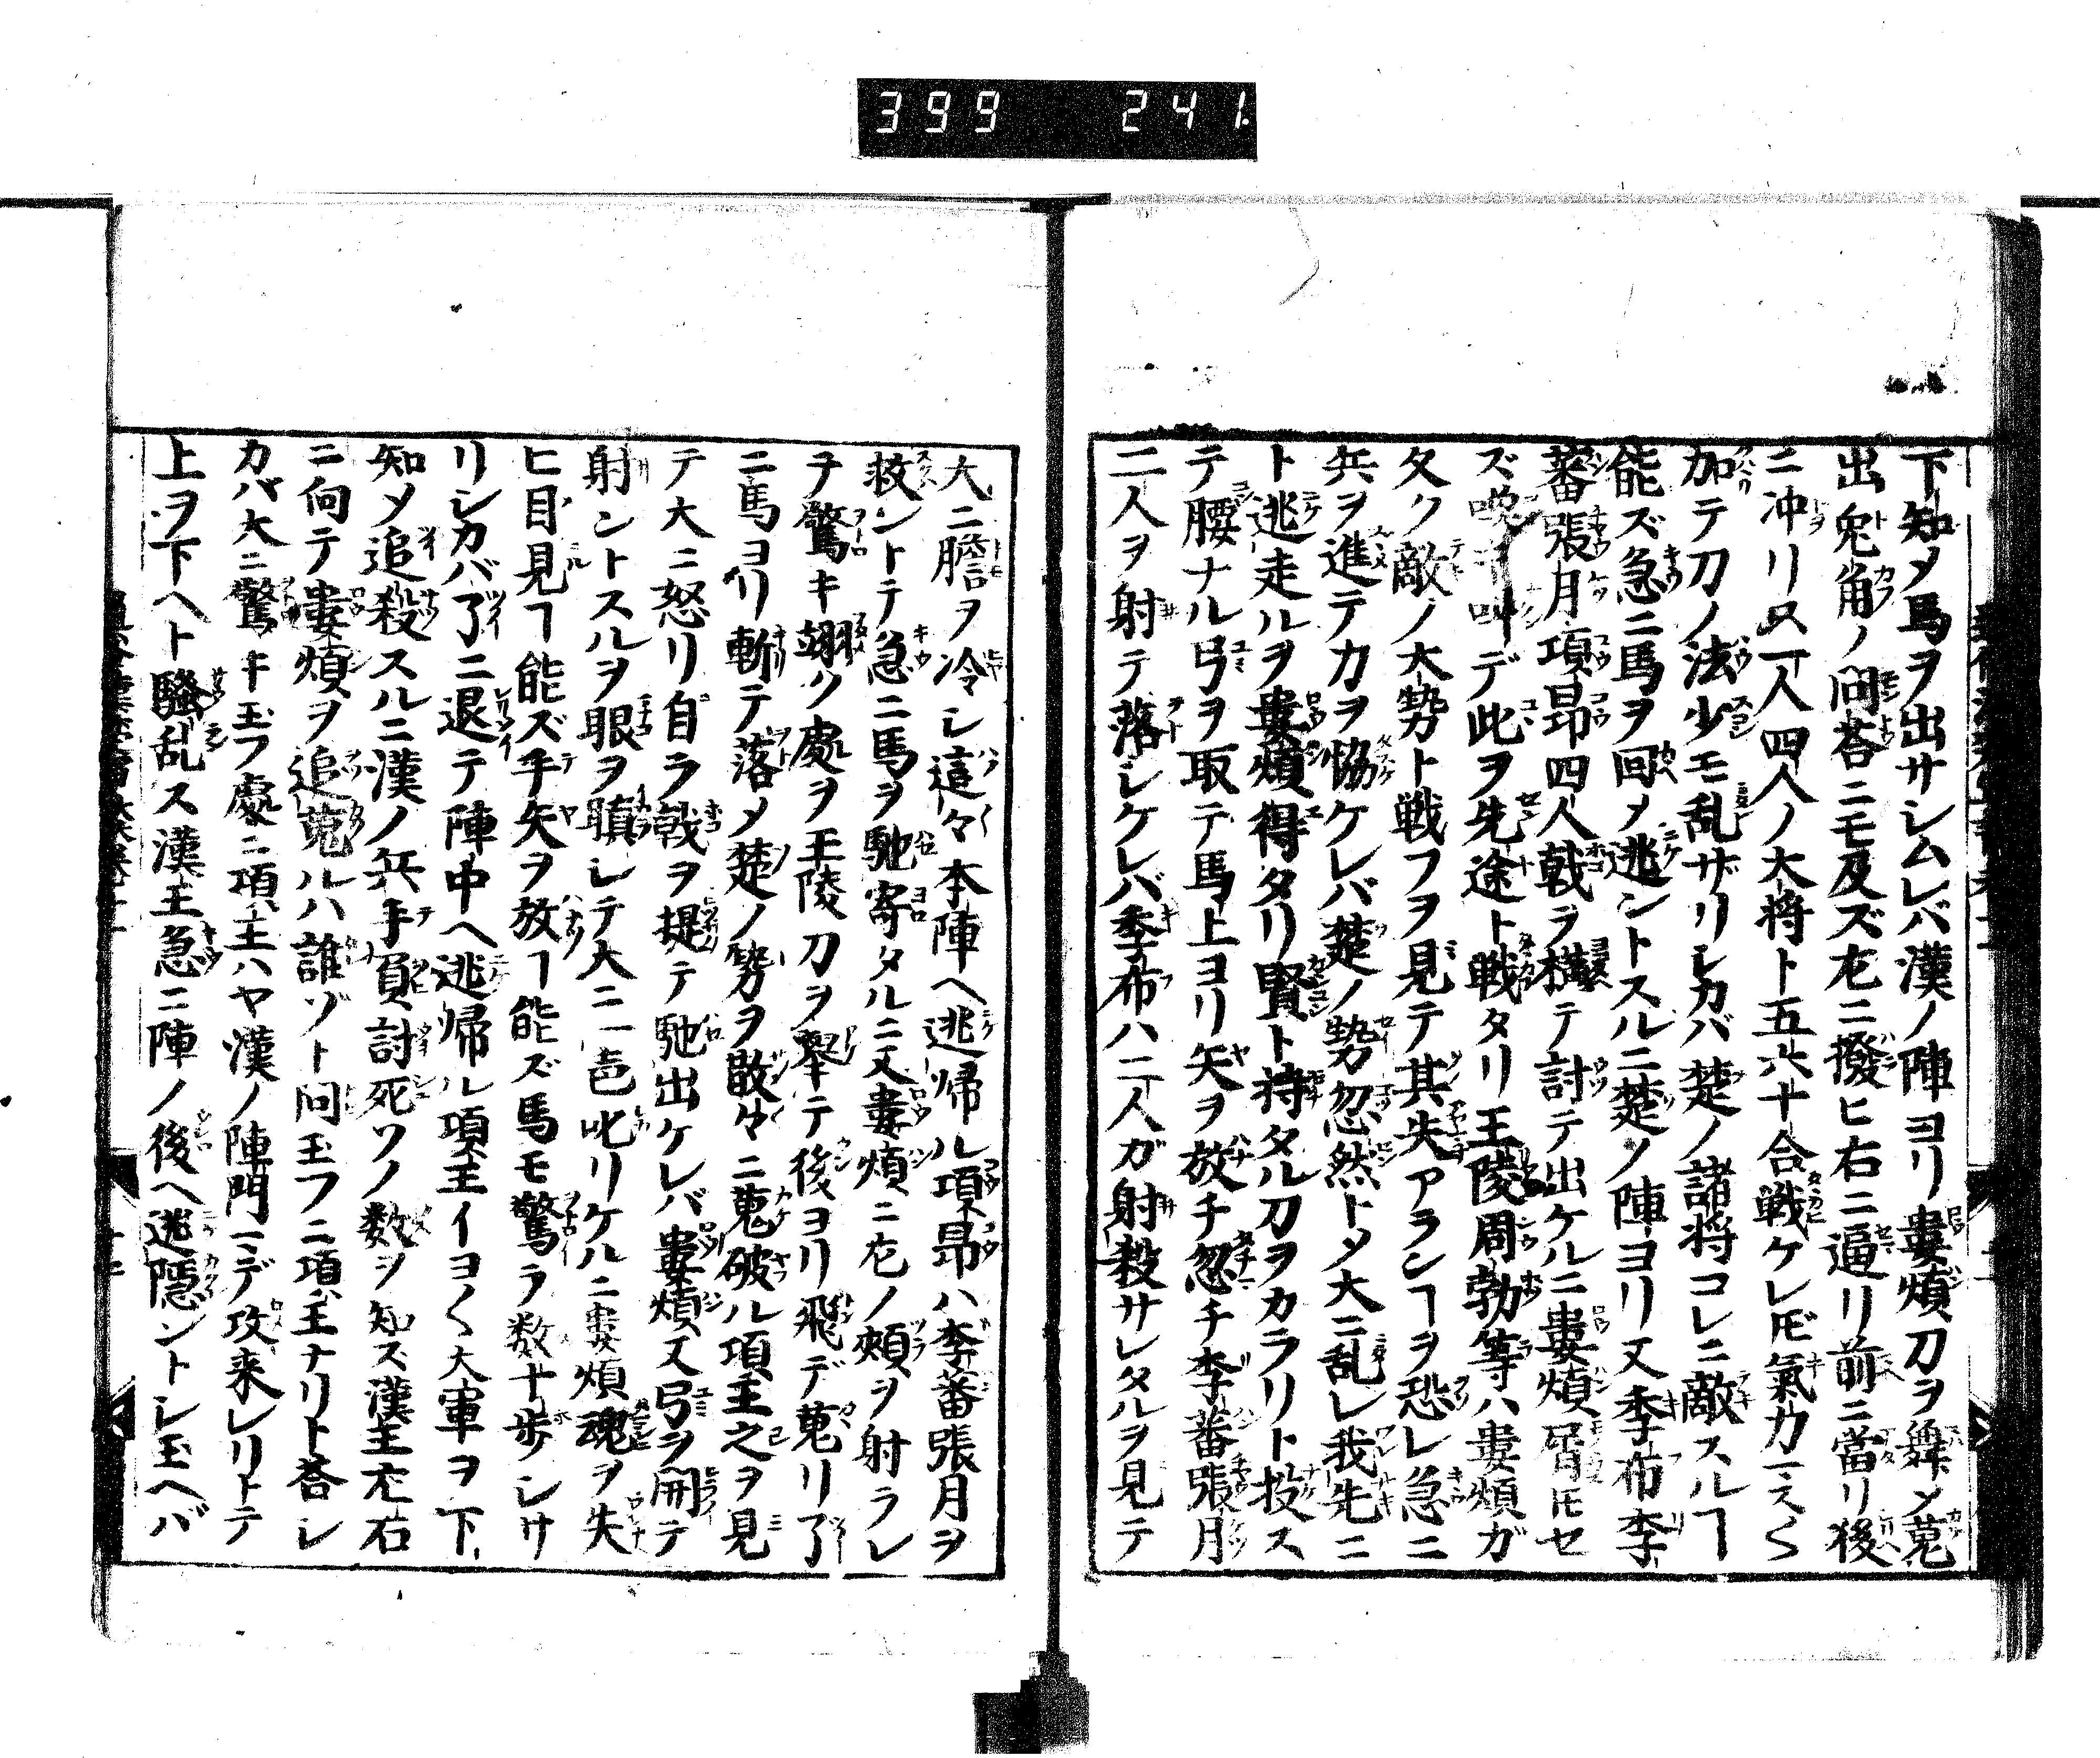 399 241
下知〆馬ヲ出サレムレバ漢ノ陣ヨリ婁煩刀ヲ舞〆蒐
出兎角ノ問荅ニモ及ズ左ニ撥ヒ右ニ逼リ前ニ當リ後
ニ冲リ只一人四人ノ大将ト五六十合戦ケレ𪜈氣力マス〱
加テ刀ノ法少モ乱ザリシカバ楚ノ諸将コレニ敵スルヿ
能ズ急ニ馬ヲ回〆逃ントスルニ楚ノ陣ヨリ又季布李
蕃張月項昻四人戟ヲ横テ討テ出ケルニ婁煩屑𪜈セ
ズ喚叫デ此ヲ先途ト戦タリ王陵周勃等ハ婁煩ガ
久ク敵ノ大勢ト戦フヲ見テ其失アランヿヲ恐レ急ニ
兵ヲ進テ力ヲ恊ケレバ楚ノ勢忽然ト〆大ニ乱レ我先ニ
ト逃走ルヲ婁煩得タリ賢ト持タル刀ヲカラリト投ス
テ腰ナル弓ヲ取テ馬上ヨリ矢ヲ放チ忽チ李蕃張月
二人ヲ射テ落シケレバ季布ハ二人ガ射殺サレタルヲ見テ
大ニ膽ヲ冷シ這々本陣ヘ逃帰ル項昻ハ李蕃張月ヲ
救ントテ急ニ馬ヲ馳寄タルニ又婁煩ニ左ノ頬ヲ射ラレ
ヲ驚キ翊ク處ヲ王陵刀ヲ挙テ後ヨリ飛デ蒐リ了
ニ馬ヨリ斬テ落〆楚ノ勢ヲ散々ニ蒐破ル項王之ヲ見
テ大ニ怒リ自ラ戟ヲ提テ馳出ケレバ婁煩又弓ヲ開テ
射ントスルヲ眼ヲ瞋シテ大ニ一声叱リケルニ婁煩魂ヲ失
ヒ目見ヿ能ズ手矢ヲ放ヿ能ズ馬モ驚ラ数十歩シサ
リシカバ了ニ退テ陣中ヘ逃帰ル項王イヨ〱大軍ヲ下
知〆追殺スルニ漢ノ兵手負討死ソノ数ヲ知ス漢王左右
ニ向テ婁煩ヲ追蒐ルハ誰ゾト問玉フニ項王ナリト荅シ
カバ大ニ驚キ玉フ處ニ項王ハヤ漢ノ陣門マデ攻来レリトテ
上ヲ下ヘト騒乱ス漢王急ニ陣ノ後ヘ逃隠ントシ玉ヘバ